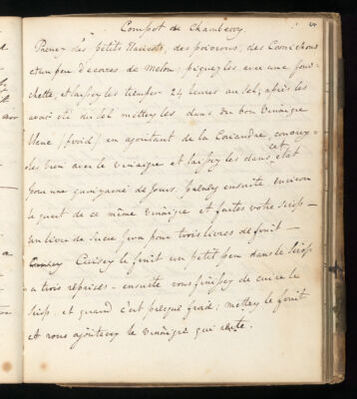 Compot de Chamberry
Prenez des petits Haricots, des poivrons, des Cornichons
et un peu d'écorces de melon; piquez les avec une four-
chette, et laissez les tremper 24 heures au sel; après les
avoir ôté du sel mettez les dans du bon Vinaigre
(froid) en ajoutant de la Coriandre, couvrez-
les bien avec le vinaigre et laissez les dans cet état
pour une quinzaine de jours. prenez ensuite environ
le quart de ce même vinaigre et faites votre Sirop —
un livre de Sucre pour trois livres de fruit —
Cuisez le fruit un petit peu dans le Sirop
a trois reprises — ensuite vous finissez de cuire le
Sirop, et quand c'est presque froid; mettez le fruit
et vous ajouterez le vinaigre qui reste.